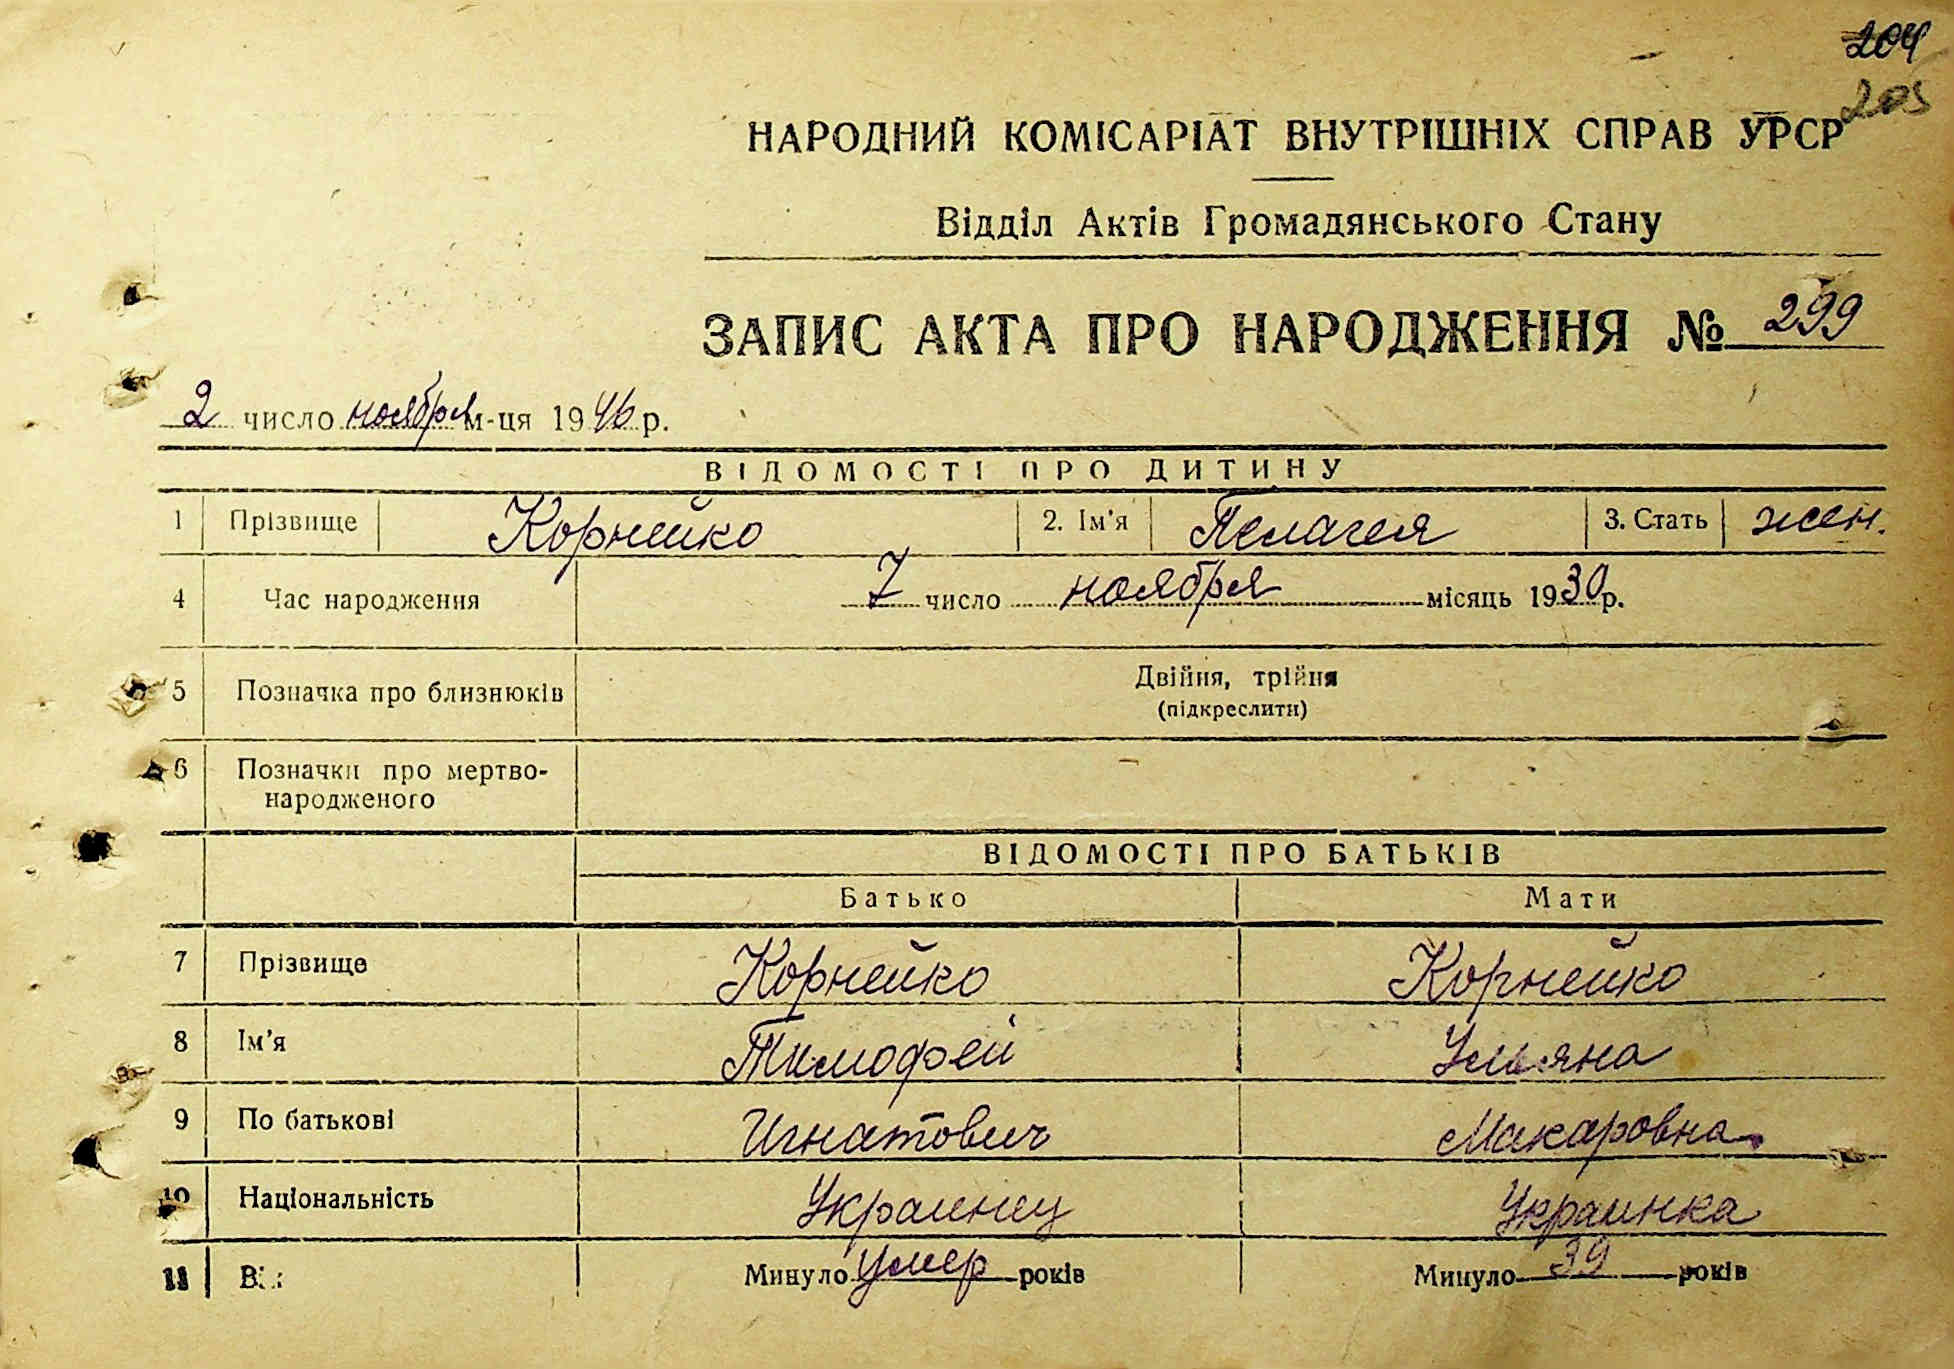 204
205
НАРОДНИЙ КОМІСАРІАТ ВНУТРІШНІХ СПРАВ УРСР
Відділ Актів Громадянського Стану
ЗАПИС АКТА ПРО НАРОДЖЕННЯ № 299
2 число ноября м-ця 1946 р.
ВІДОМОСТІ ПРО ДИТИНУ
1 Прізвище Корнейко 2. Ім'я Пелагея 3. Стать жен.
4 Час народження 7 число ноября місяць 1930 р.
5 Позначка про близнюків Двійня, трійня
(підкреслити)
6 Позначки про мертво-
народженого
ВІДОМОСТІ ПРО БАТЬКІВ
Батько Мати
7 Прізвище Корнейко Корнейко
8 Ім'я Тимофей Ульяна
9 По батькові Игнатович Макаровна
10 Національність Украинец Украинка
11 Вік Минуло умер років Минуло 39 років